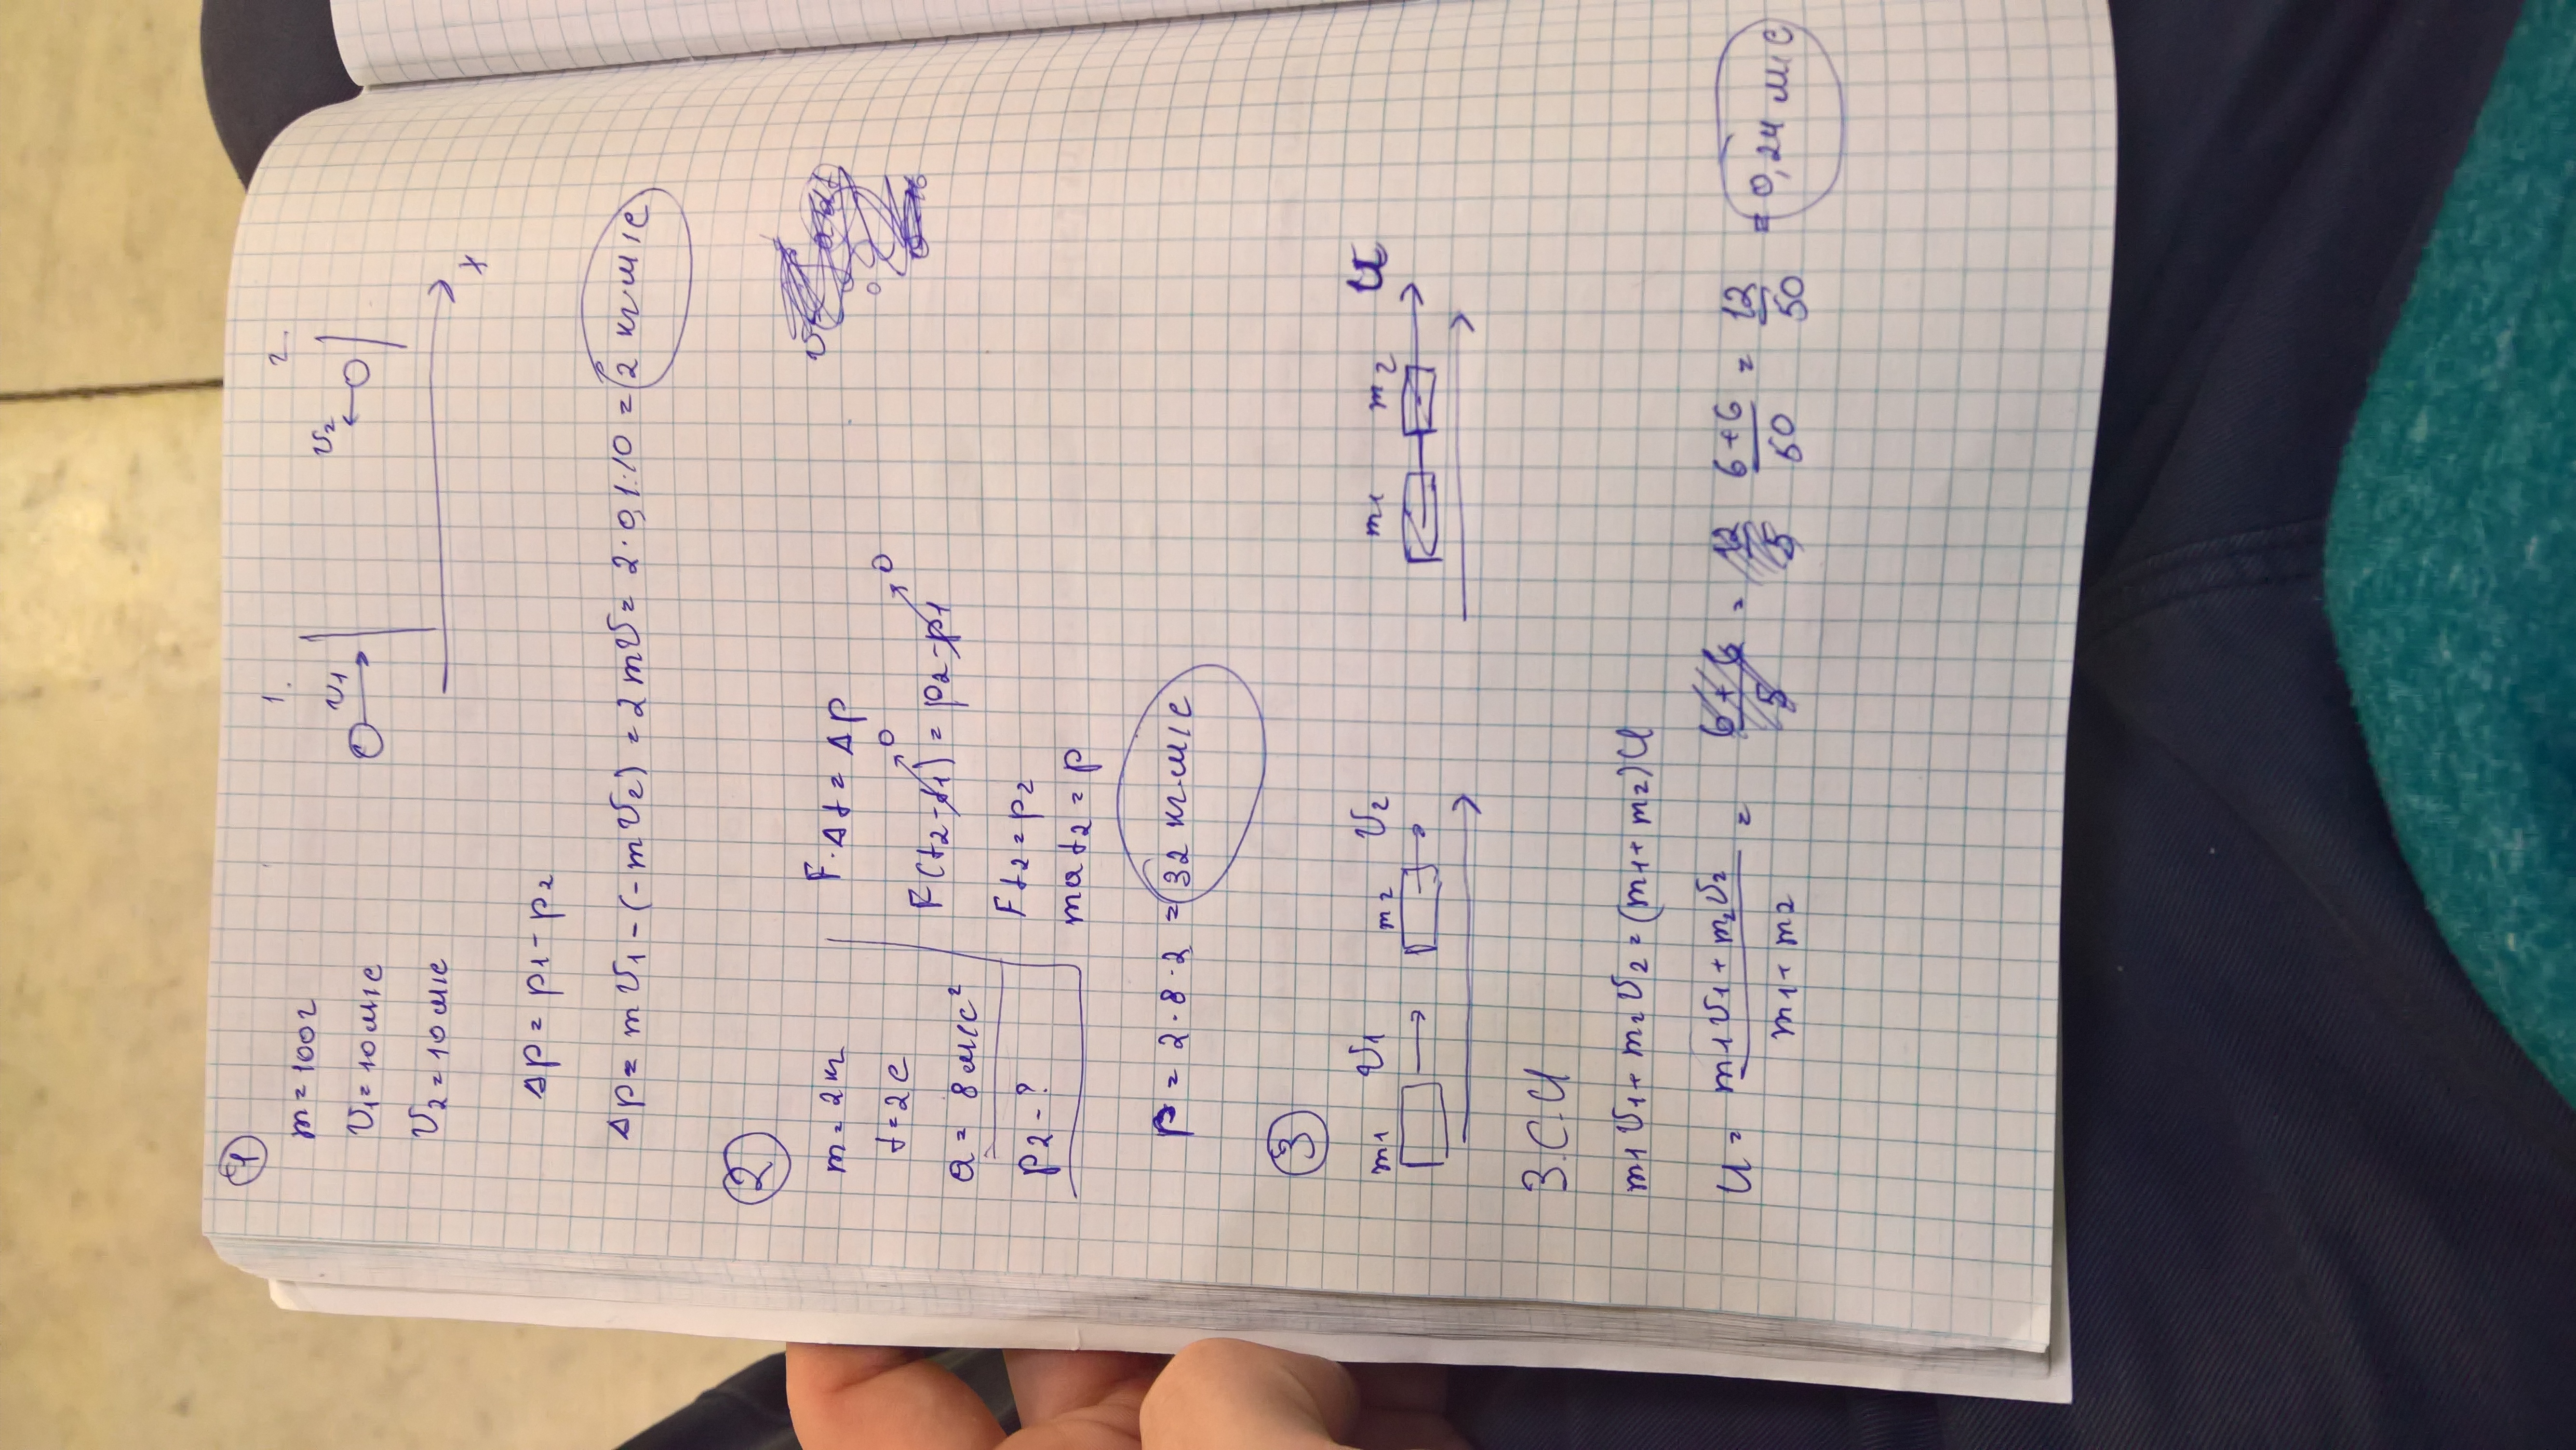 1
m = 100г
v₁ = 10 м/с
v₂ = 10 м/с
1.
v₁
2.
v₂
x
Δp = p₁ - p₂
Δp = mv₁ - (-mv₂) = 2mv = 2·0,1·10 = 2 кг·м/с
2
m = 2кг
t = 2с
a = 8 м/с²
p₂ - ?
F·Δt = Δp
F(t₂ - t₁) = p₂ - p₁
0
0
Ft₂ = p₂
mat₂ = p
p = 2·8·2 = 32 кг·м/с
3
m₁ v₁ m₂ v₂
m₁ m₂ u
З.С.И
m₁v₁ + m₂v₂ = (m₁ + m₂)u
u = m₁v₁ + m₂v₂ / m₁ + m₂ = 6+6 / 5 = 12 / 5 6+6 / 50 = 12 / 50 = 0,24 м/с